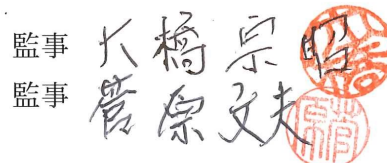 監事 大橋宗昭
監事 菅原文夫